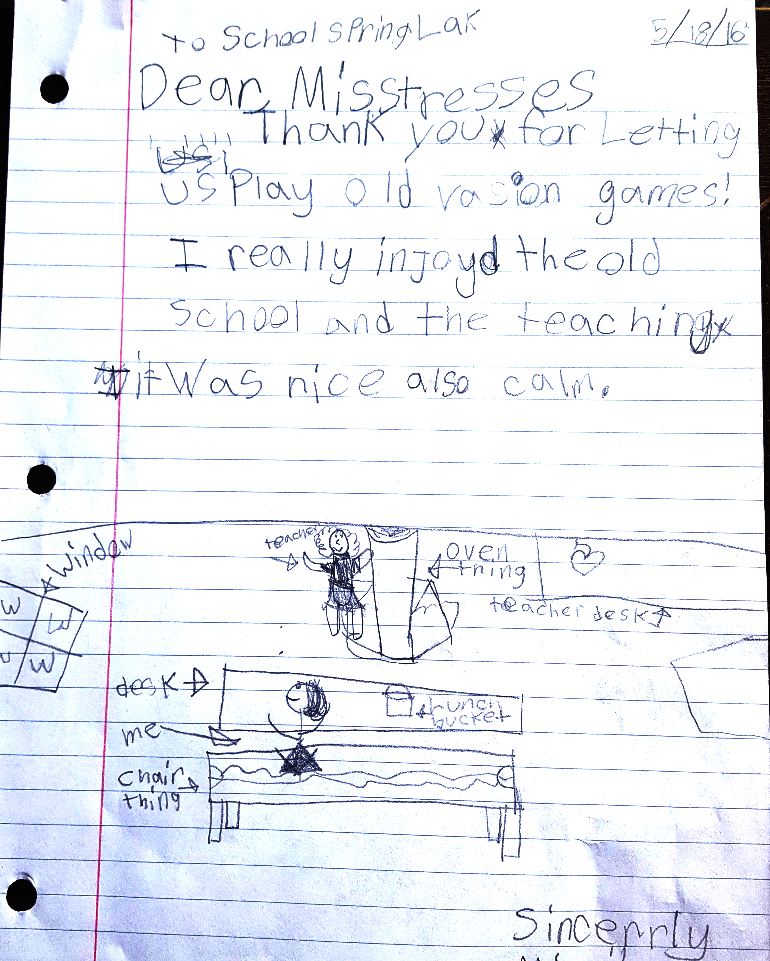 To School Spring Lak
5/18/16
Dear Misstresses
Thank you for Letting
us Play old vasion games!
I really injoyd the old
School and the teaching
it Was nice also calm.
Window
teacher
oven
thing
teacher desk
W
W
desk
Lunch
bucket
me
chair
thing
Sincerrly